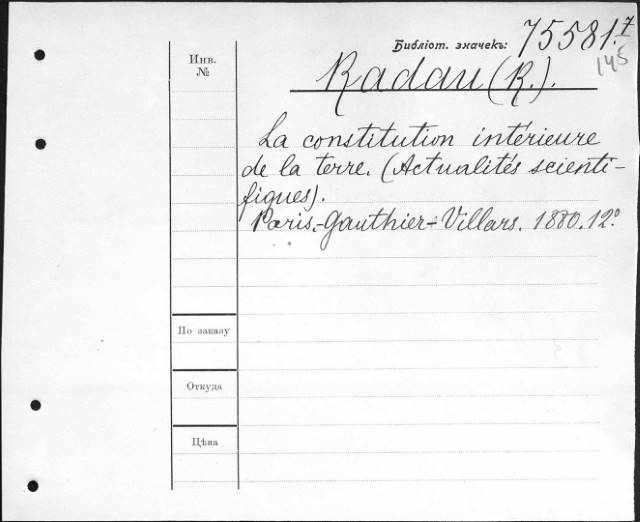 Библіот. значекъ: 75581.7
145
Инв.
№
Radau (R.).
La constitution intérieure
de la terre. (Actualités scienti-
fiques).
Paris.-Gauthier-Villars. 1880. 12º
По заказу
Откуда
Цѣна